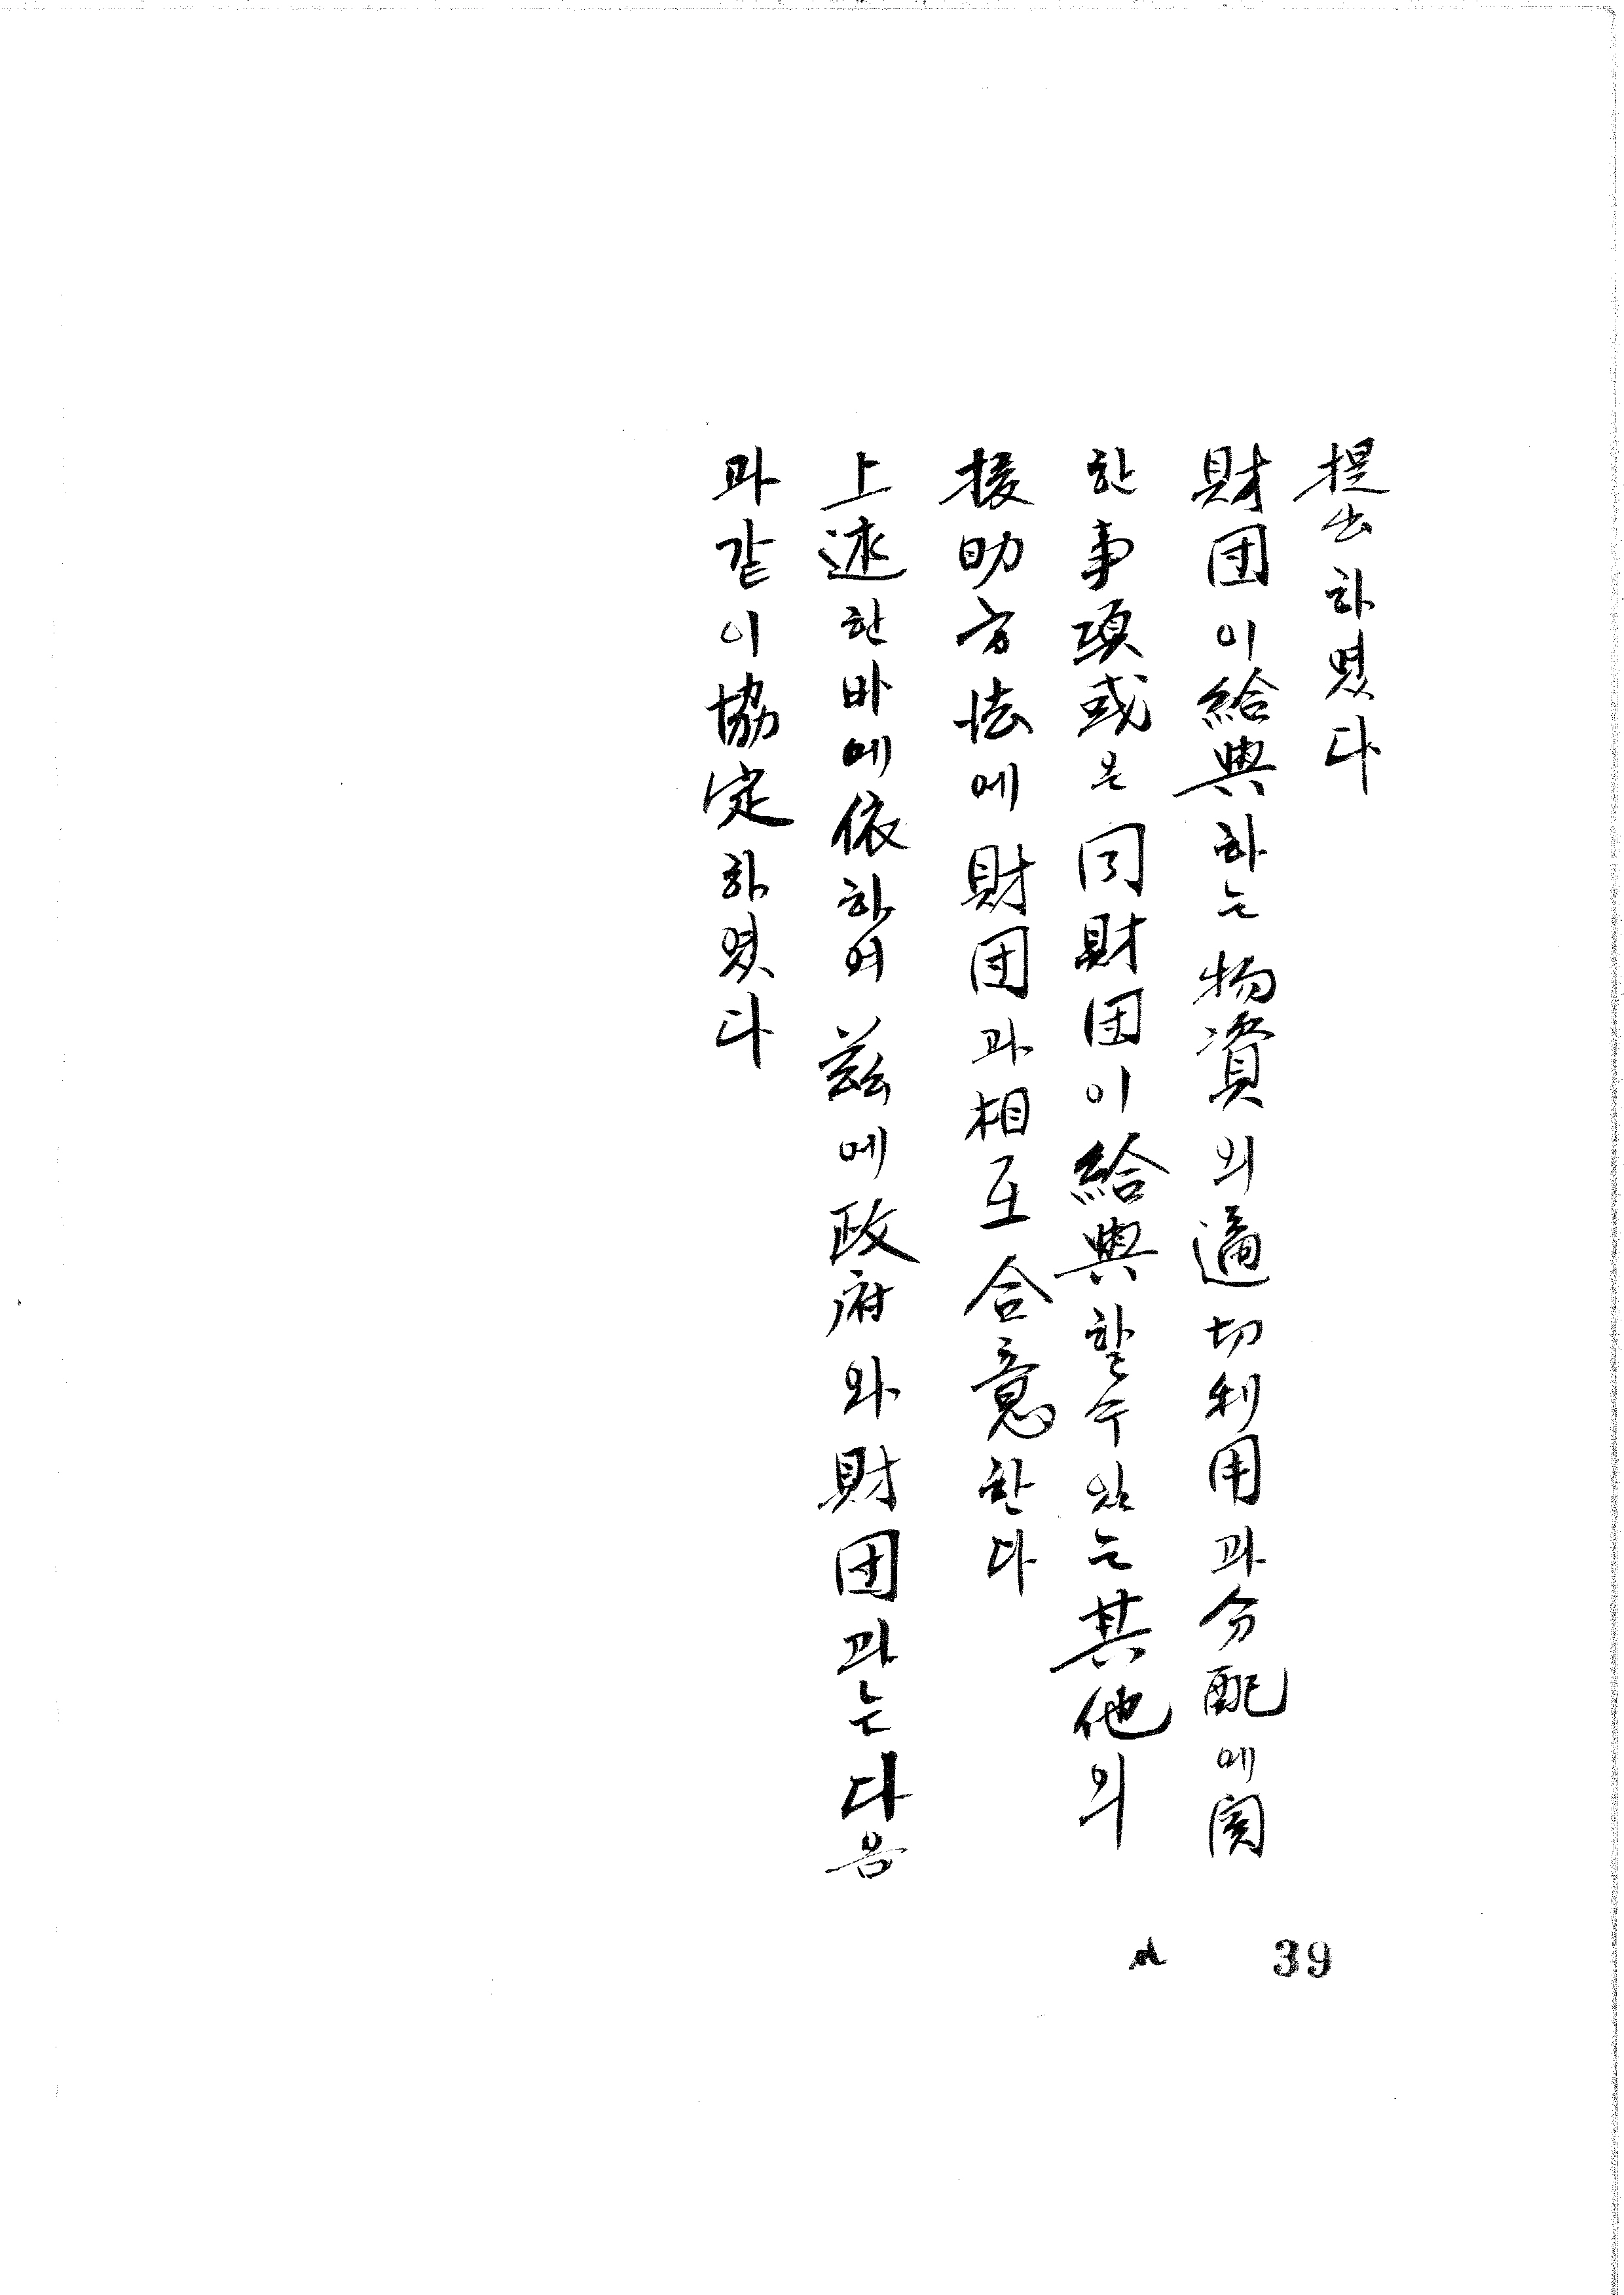 提出하였다
財団이給與하는物資의適切利用과分配에関
한事項或은同財団이給與할수있는其他의
援助方法에財団과相互合意한다
上述한바에依하여玆에政府와財団과는다음
과같이協定하였다
39